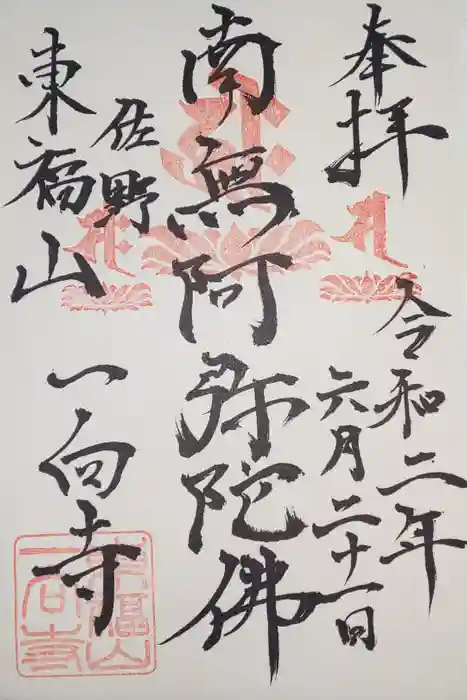 奉拝
令和二年
六月二十一日
南無阿弥陀佛
佐野
東福山
一向寺
東福山
一向寺